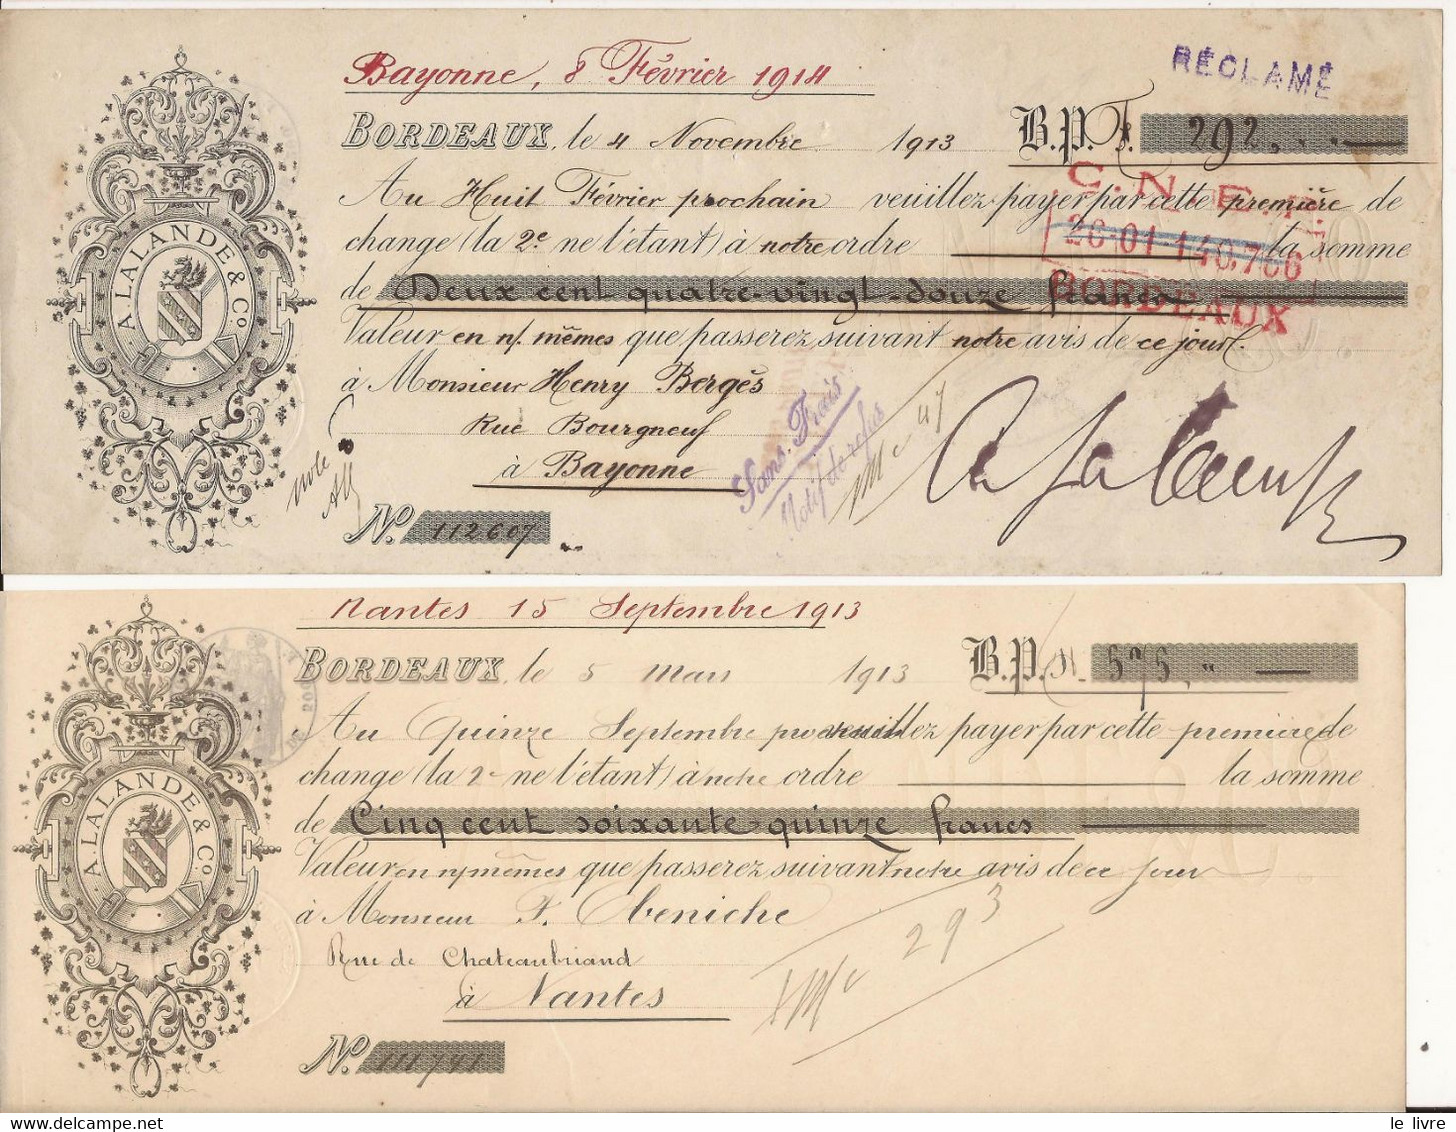 Bayonne, 8 Février 1914
RÉCLAMÉ
BORDEAUX, le 4 Novembre 1913 B.P.F. 292,..
Au Huit Février prochain veuillez payer par cette première de
C.N.E.P.
change (la 2e ne l'étant) à notre ordre la somme
26-01-14 0.766
de Deux cent quatre-vingt-douze francs
BORDEAUX
Valeur en n/. mêmes que passerez suivant notre avis de ce jour.
à Monsieur Henry Bergès
Rue Bourgneuf
à Bayonne
Sans Frais
47
No. 112607
A LALANDE & Co
Nantes 15 Septembre 1913
BORDEAUX, le 5 Mars 1913 B.P. 575,"
Au Quinze Septembre pro veuillez payer par cette première de
change (la 2e ne l'étant) à notre ordre la somme
de Cinq cent soixante-quinze francs
Valeur en n/ mêmes que passerez suivant notre avis de ce jour
à Monsieur F. Obeniche
Rue de Chateaubriand
à Nantes
293
No. 111741
A LALANDE & Co
le livre